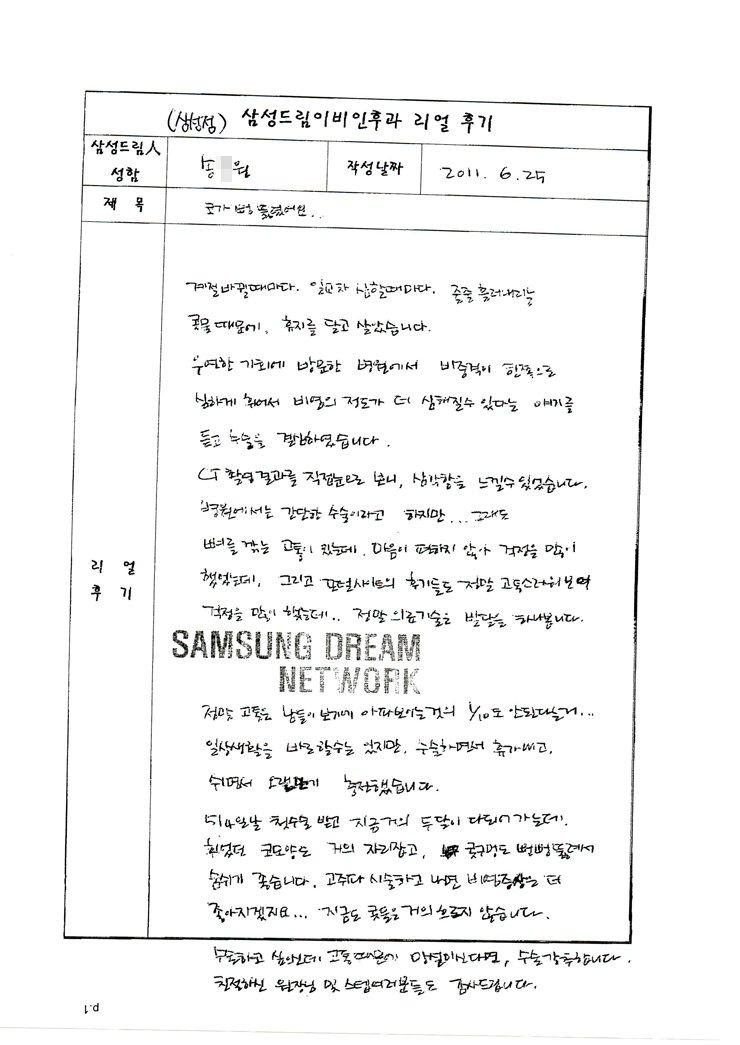 (삼성점) 삼성드림이비인후과 리얼 후기
삼성드림人 성함
송 원
작성날짜
2011. 6. 25
제 목
코가 뻥 뚫렸어요..
리 얼 후 기
계절바뀔때마다. 일교차 심할때마다. 줄줄 흘러내리는
콧물 때문에, 휴지를 달고 살았습니다.
우연한 기회에 방문한 병원에서 비중격이 한쪽으로
심하게 휘어서 비염의 정도가 더 심해질수 있다는 얘기를
듣고 수술을 결심하였습니다.
CT 촬영결과를 직접눈으로 보니, 심각함을 느낄수 있었습니다.
병원에서는 간단한 수술이라고 하지만... 그래도
뼈를 깎는 고통이 있는데. 마음이 편하지 않아 걱정을 많이
했었는데, 그리고 포털사이트의 후기들도 정말 고통스러워보여
걱정을 많이 했는데.. 정말 의료기술은 발달을 하나봅니다.
SAMSUNG DREAM
NETWORK
정말 고통은 남들이 보기에 아파보이는것의 1/10도 안된다는거...
일상생활을 바로할수는 있지만, 수술하면서 휴가내고,
쉬면서 오랜만에 충전했습니다.
5/4일날 첫수술 받고 지금거의 두달이 다되어 가는데.
휘었던 코모양도 거의 자리잡고, 콧구멍도 뻥뻥뚫려서
숨쉬기 좋습니다. 고주파 시술하고 나면 비염증상은 더
좋아지겠지요... 지금도 콧물은거의 흐르지 않습니다.
수술하고 싶은데 고통때문에 망설이신다면, 수술강추합니다.
친절하신 원장님 및 스텝여러분들도 감사드립니다.
p.1